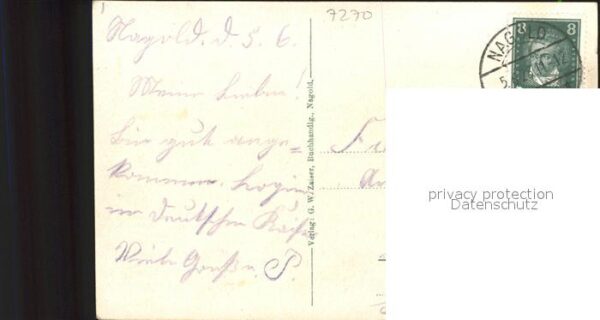 7270
Nagold. d. 5. 6.
Meine Lieben!
Bin gut ange=
kommen. Logiere
im deutschen Kaiser
Viele Grüße. P.
Verlag: G. W. Zaiser, Buchhandlg., Nagold.
NAGOLD
8 8
privacy protection
Datenschutz